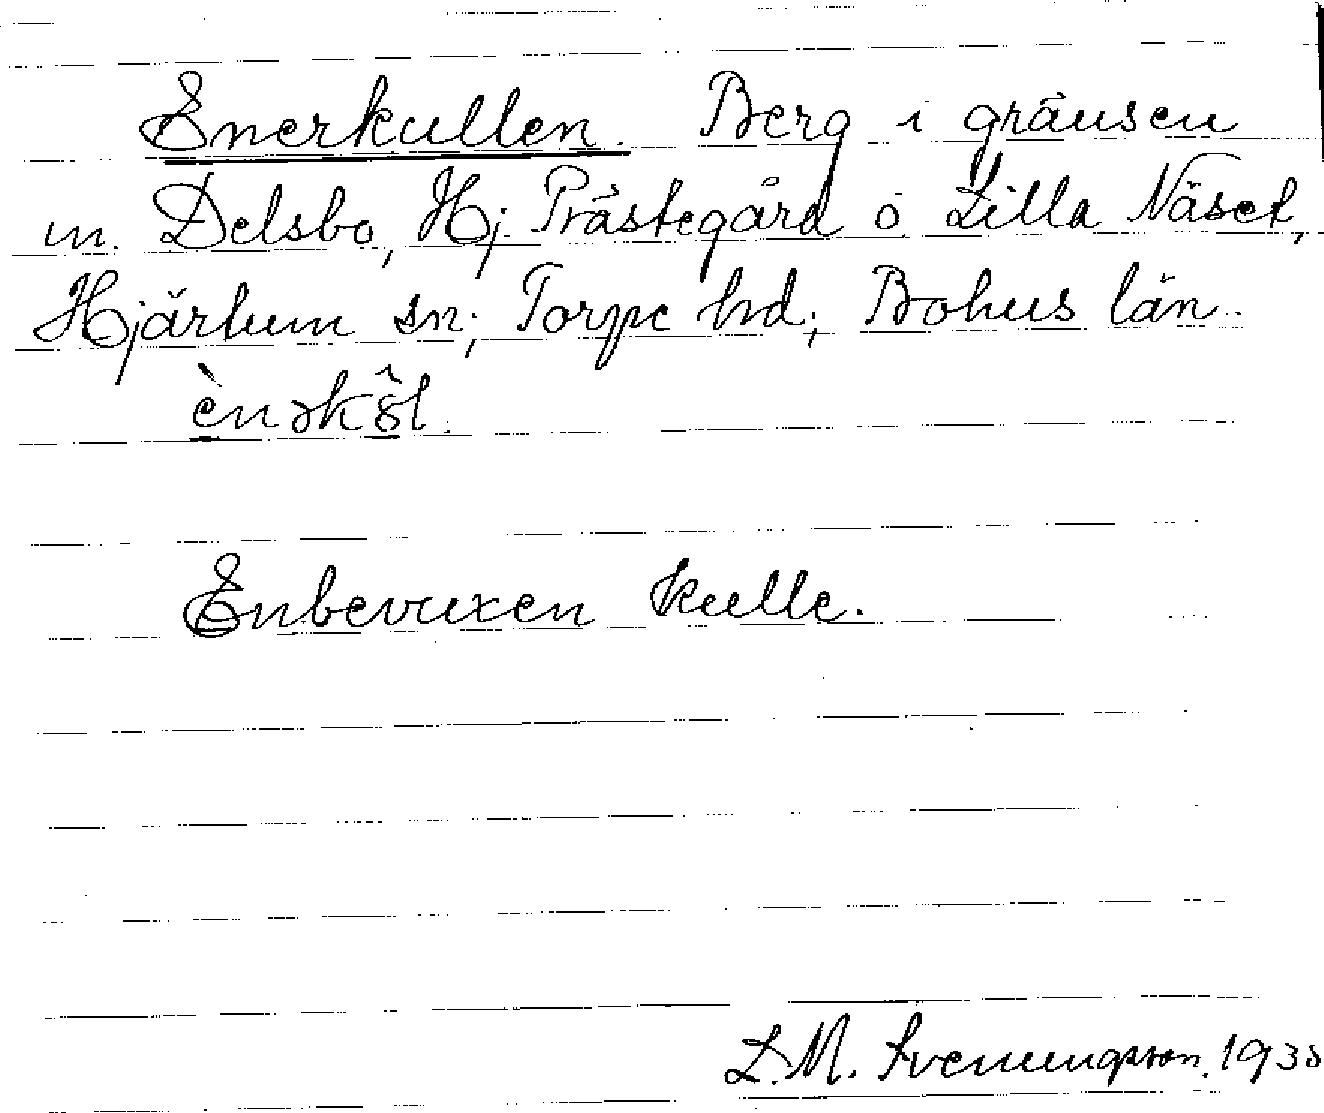 Enerkullen. Berg i gränsen
m. Delsbo, Hj. Prästegård o Lilla Näset,
Hjärtum sn; Torpe hd; Bohus län.
ènəkö̂l.
Enbevuxen kulle.
L. M. Svenungsson.